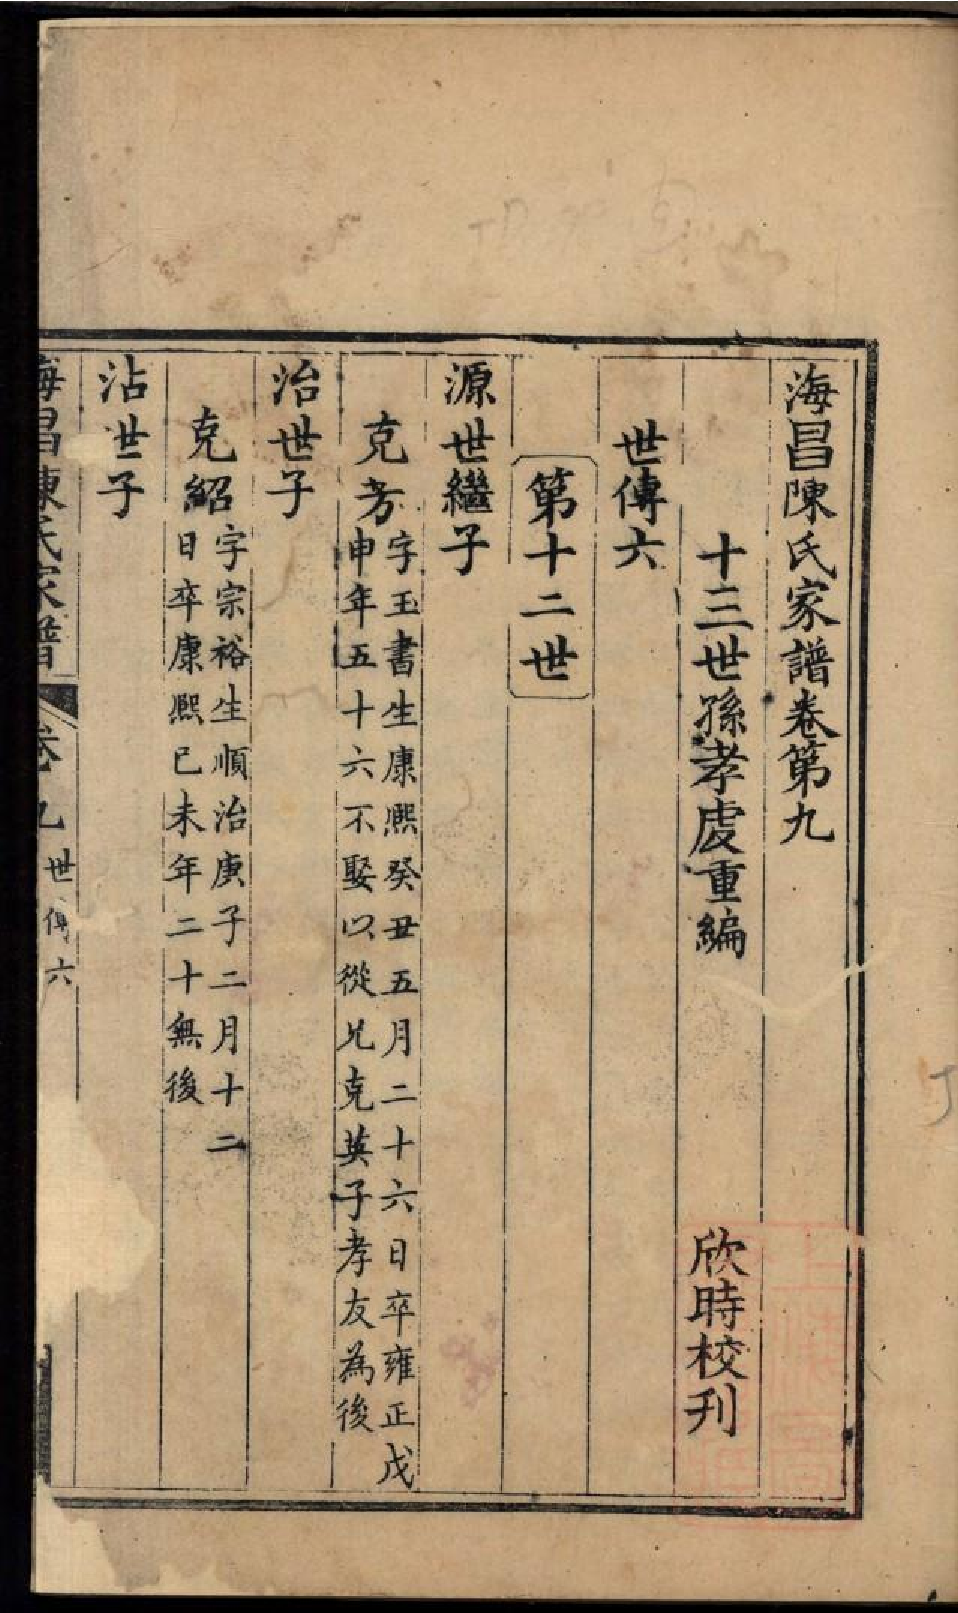 海昌陳氏家譜卷第九
十三世孫孝虔重編　欣時校刋
世傳六
第十二世
源世繼子
克芳字玉書生康熙癸丑五月二十六日卒雍正戊
申年五十六不娶以從兄克英子孝友為後
治世子
克紹字宗裕生順治庚子二月十二
日卒康熙已未年二十無後
沾世子
海昌陳氏家譜　卷九　世傳六